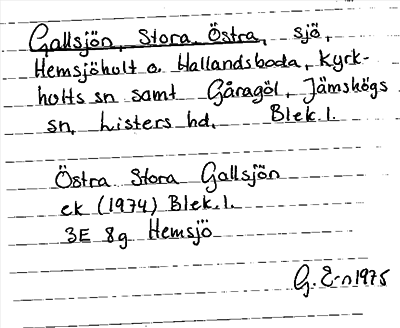 Gallsjön, Stora Östra, sjö,
Hemsjöholt o. Hallandsboda, Kyrk-
hults sn samt Gåragöl, Jämshögs
sn, Listers hd, Blek.l.
Östra Stora Gallsjön
ek (1974) Blek.l.
3E 8g Hemsjö
G. E-n 1975